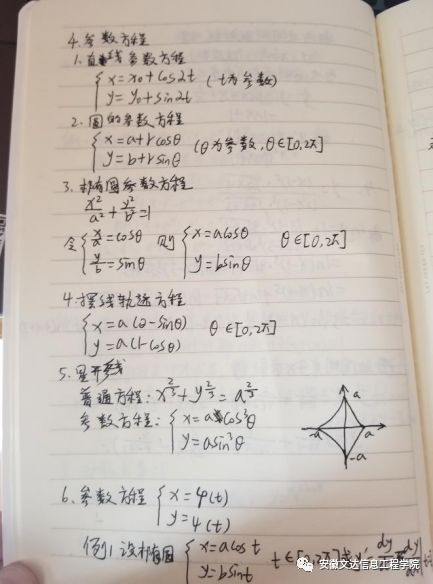 4.参数方程
1.直线参数方程
{ x=x₀+cos2t
y=y₀+sin2t (t为参数)
2.圆的参数方程
{ x=a+rcosθ
y=b+rsinθ (θ为参数,θ∈[0,2π]
3.椭圆参数方程
x²/a²+y²/b²=1
令{ x/a=cosθ
y/b=sinθ 则{ x=acosθ
y=bsinθ θ∈[0,2π]
4.摆线轨迹方程
{ x=a(θ-sinθ)
y=a(1-cosθ) θ∈[0,2π]
5.星形线
普通方程:x^(2/3)+y^(2/3)=a^(2/3)
参数方程:{ x=acos³θ
y=asin³θ
a
-a
a
-a
6.参数方程{ x=φ(t)
y=ψ(t)
例1.设椭圆{ x=acost
y=bsint t∈[0,2π]求y'=dy
安徽文达信息工程学院